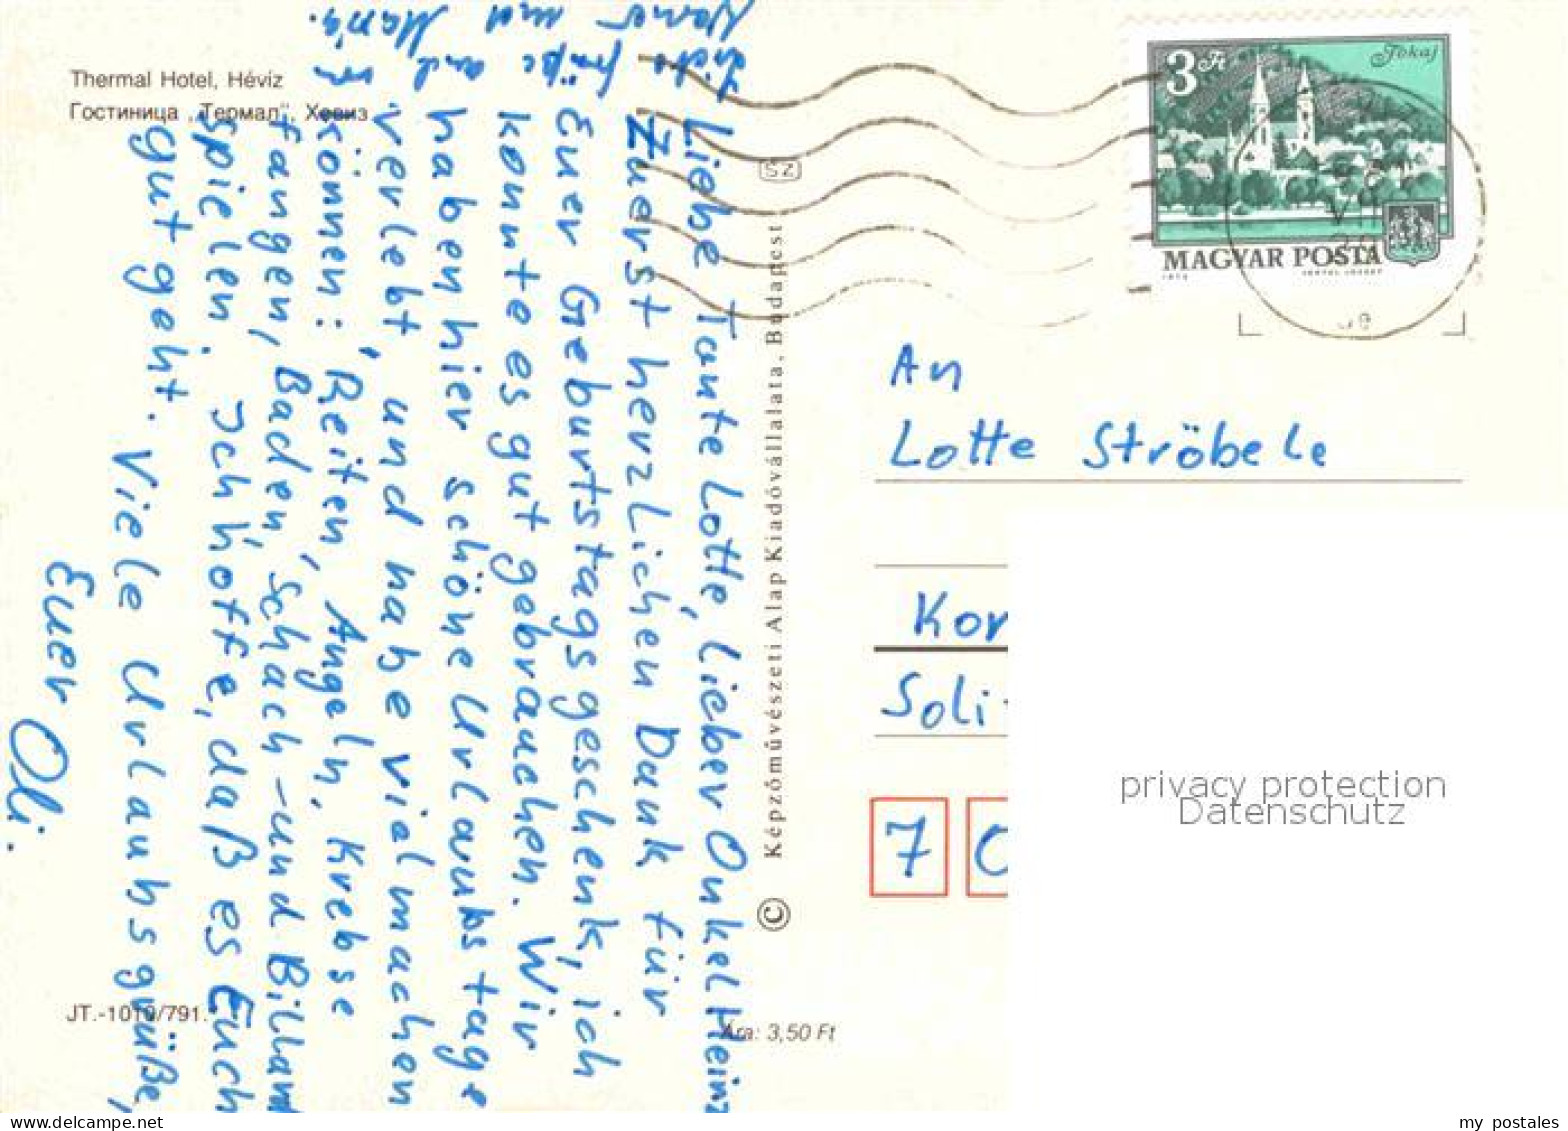 Thermal Hotel, Hévíz
Гостиница „Термал“, Хевиз
Liebe Tante Lotte, lieber Onkel Heinz
Zuerst herzlichen Dank für
Euer Geburtstagsgeschenk, ich
konnte es gut gebrauchen. Wir
haben hier schöne Urlaubstage
verlebt, und habe viel machen
können: Reiten, Angeln, Krebse
fangen, Baden, Schach- und Billard
spielen. Ich hoffe, daß es Euch
gut geht. Viele Urlaubsgrüße,
Euer Oli.
und
und Maria.
JT.-1019/791.
Ára: 3,50 Ft
© Képzőművészeti Alap Kiadóvállalata, Budapest
SZ
3 Ft
Tokaj
MAGYAR POSTA
An
Lotte Ströbele
Kor
Soli
7 0
privacy protection
Datenschutz
www.delcampe.net
my_postales